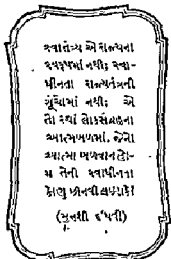 સ્વાતંત્ર્ય એ રાજ્યના
સ્વરૂપમાં નથી; સ્વા-
ધીનતા રાજ્યતંત્રની
ખૂબીમાં નથી; એ
તો રહ્યાં લોકસમૂહના
આત્મબળમાં. જેનો
આત્મા બળવાન હો-
ય તેની સ્વાધીનતા
કોણ છીનવી શકે?
(મુનશી